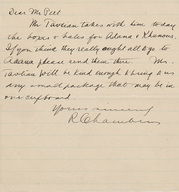 Dear Mr Peet
Mr Tavitian takes with him today
the boxes & bales for Adana &
If you think they really ought all to go to
Adana please send them there. Mr.
Tavitian will be kind enough to bring us
any small package that may be in
our cupboard.
Yours sincerely
R Chambers